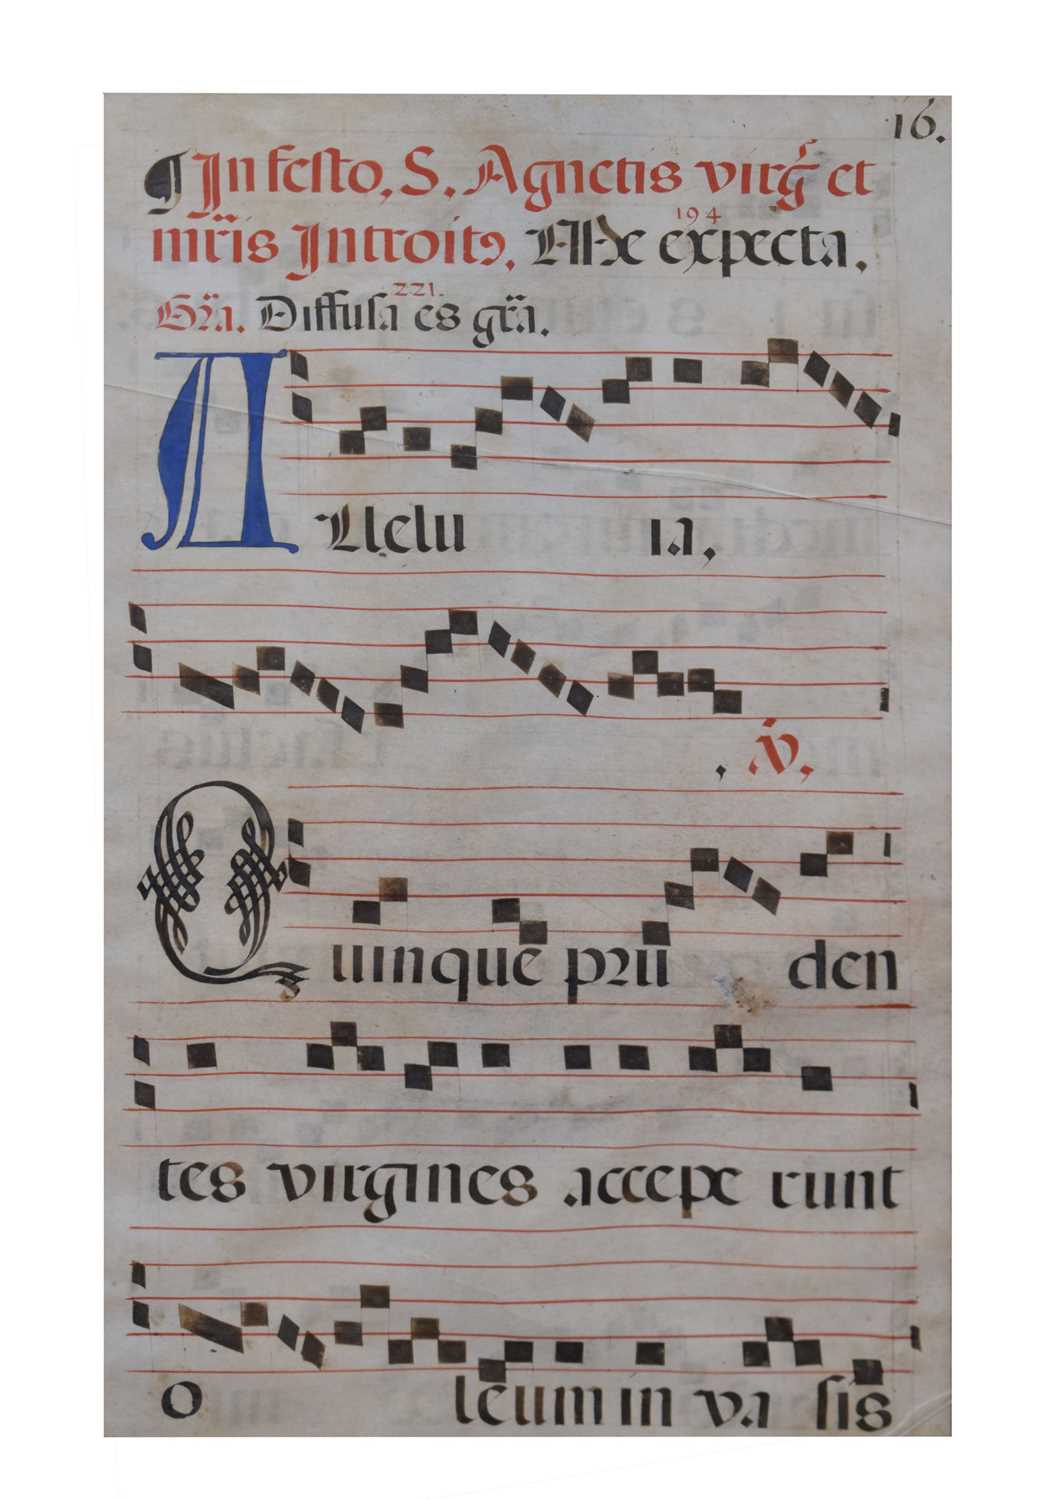 16.
¶ In festo, S. Agnetis virg̃ et
mr̃is Introitꝰ, Me expecta.
194
Gr̃a. Diffusa es gr̃a.
221.
A
Llelu ia,
, ℣,
Quinque pru den
tes virgines accepe runt
o leum in va sis